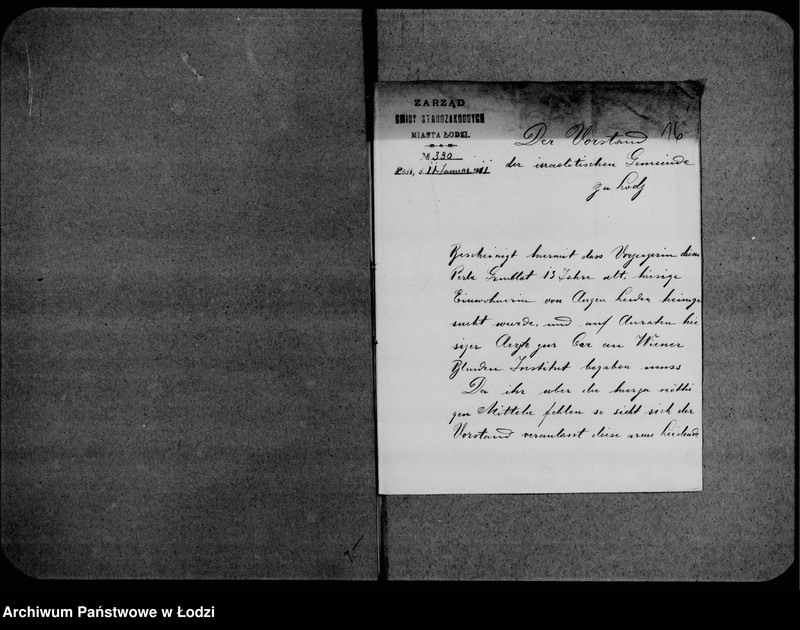 ZARZĄD
GMINY STAROZAKONNYCH
MIASTA ŁODZI.
№ 330
Łódź, d. 11 Januar
16
Der Vorstand
der israelitischen Gemeinde
zu Lodz
Bescheinigt hiermit dass Vorzeigerin dieses
Perla Grinblat 13 Jahre alt, hiesige
Einwohnerin von Augen Leiden heimge
sucht wurde, und auf Anraten hie
siger Aerzte zur Cur an Wiener
Blinden Institut begeben muss
Da ihr aber die hierzu nöthi
gen Mitteln fehlen so sieht sich der
Vorstand veranlasst diese arme Leidende
Archiwum Państwowe w Łodzi